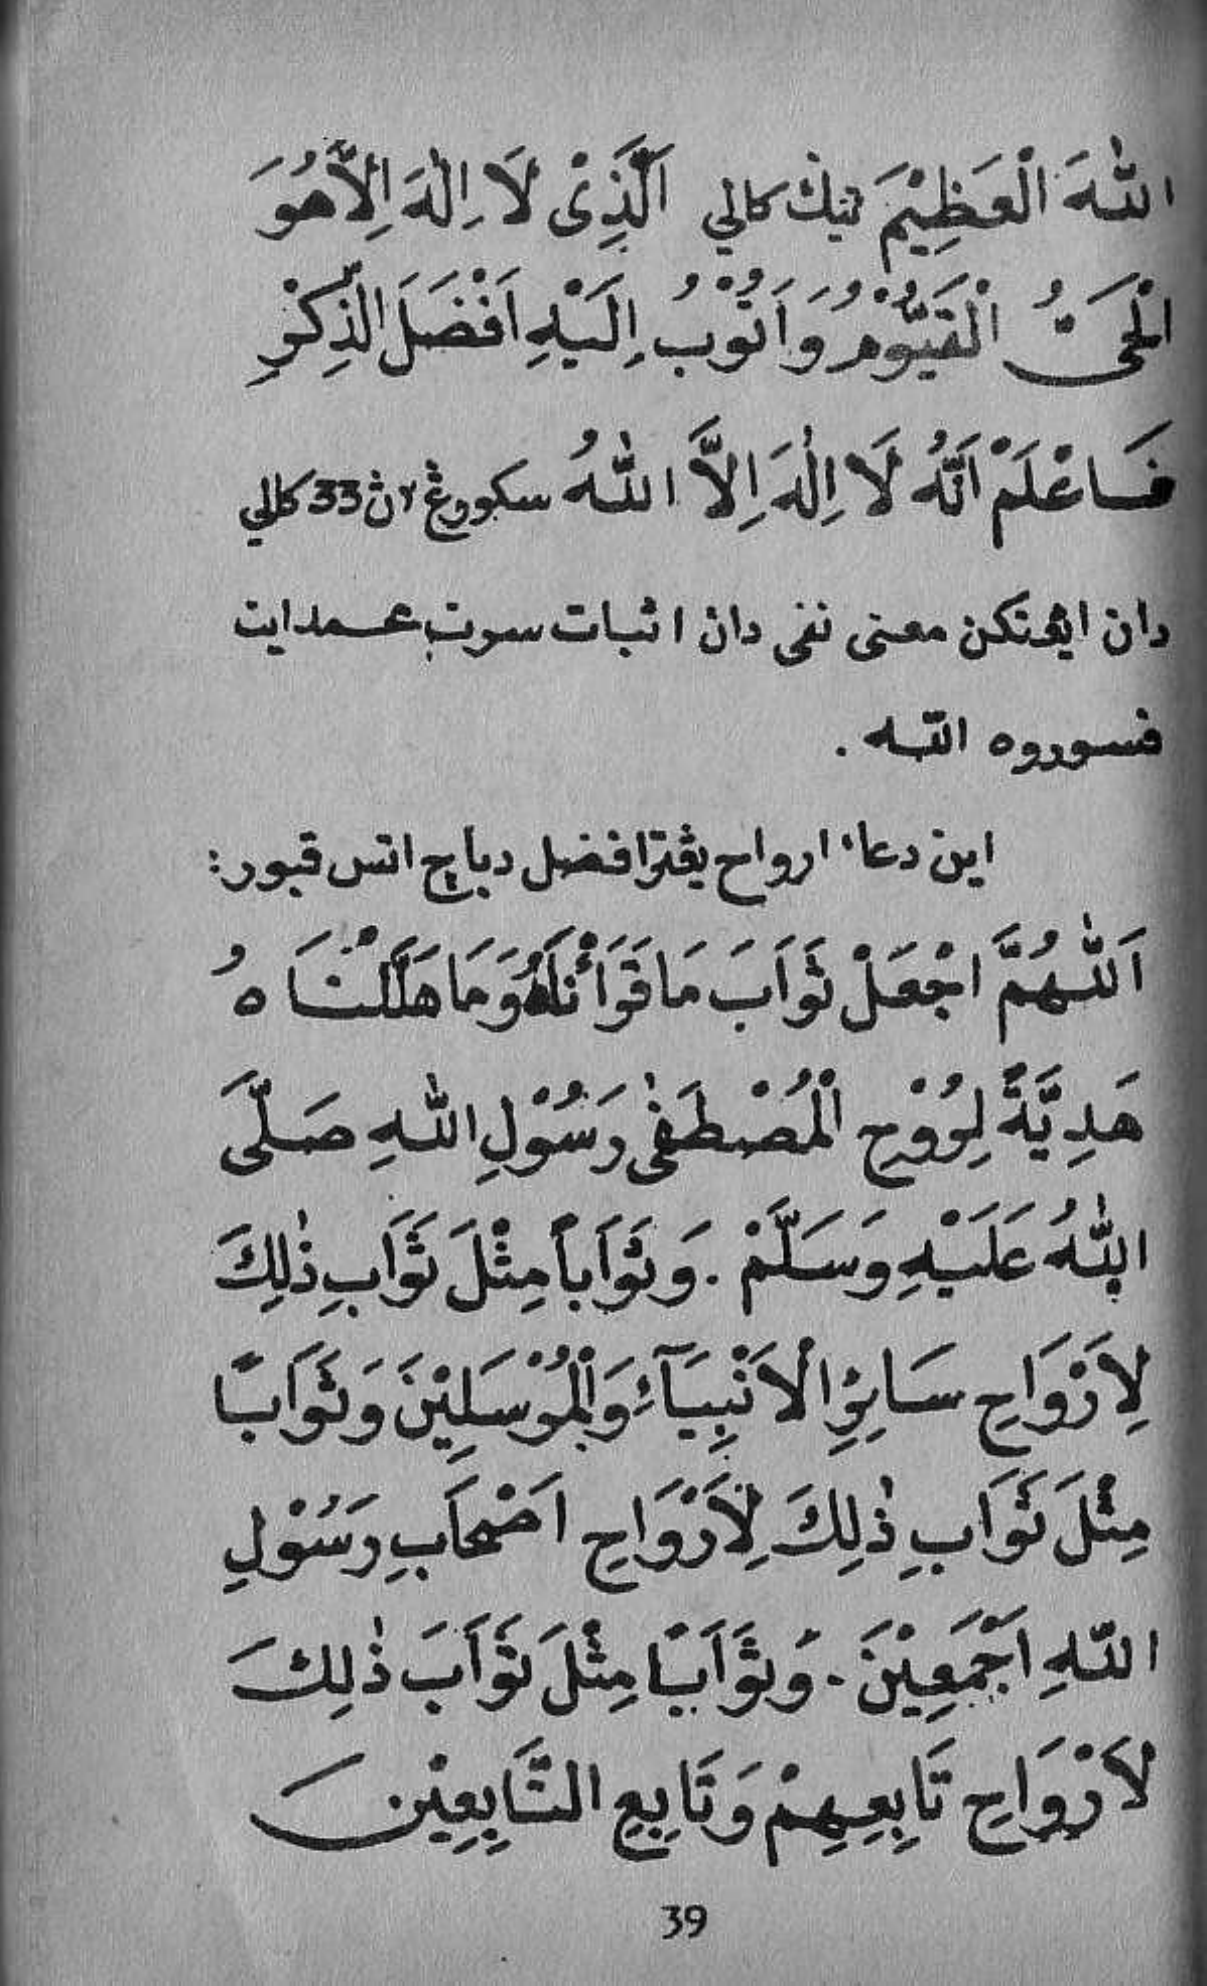 اللهَ الْعَظِيْمَ تيݢ كالي اَلَّذِىْ لَا اِلٰهَ اِلَّا هُوَ
الْحَىُّ الْقَيُّوْمُ وَاَتُوْبُ اِلَيْهِ اَفْضَلَ الذِّكْرِ
فَاعْلَمْ اَنَّهُ لَا اِلٰهَ اِلَّا اللهُ سكورڠ٢ن 33 كالي
دان معنى نفى دان اثبات سرت
فسوروه الله .
اين دعاء ارواح يڠترافضل دباچ اتس قبور:
اَللّٰهُمَّ اجْعَلْ ثَوَابَ مَا قَرَأْنَاهُ وَمَا هَلَّلْنَاهُ
هَدِيَّةً لِرُوْحِ الْمُصْطَفٰى رَسُوْلِ اللهِ صَلَّى
اللهُ عَلَيْهِ وَسَلَّمْ . وَثَوَاباً مِثْلَ ثَوَابِ ذٰلِكَ
لِاَرْوَاحِ سَائِرِ الْاَنْبِيَآءِ وَالْمُرْسَلِيْنَ وَثَوَابًا
مِثْلَ ثَوَابِ ذٰلِكَ لِاَرْوَاحِ اَصْحَابِ رَسُوْلِ
اللهِ اَجْمَعِيْنَ . وَثَوَابًا مِثْلَ ثَوَابَ ذٰلِكَ
لاَرْوَاحِ تَابِعِهِمْ وَتَابِعِ التَّابِعِيْنَ
39